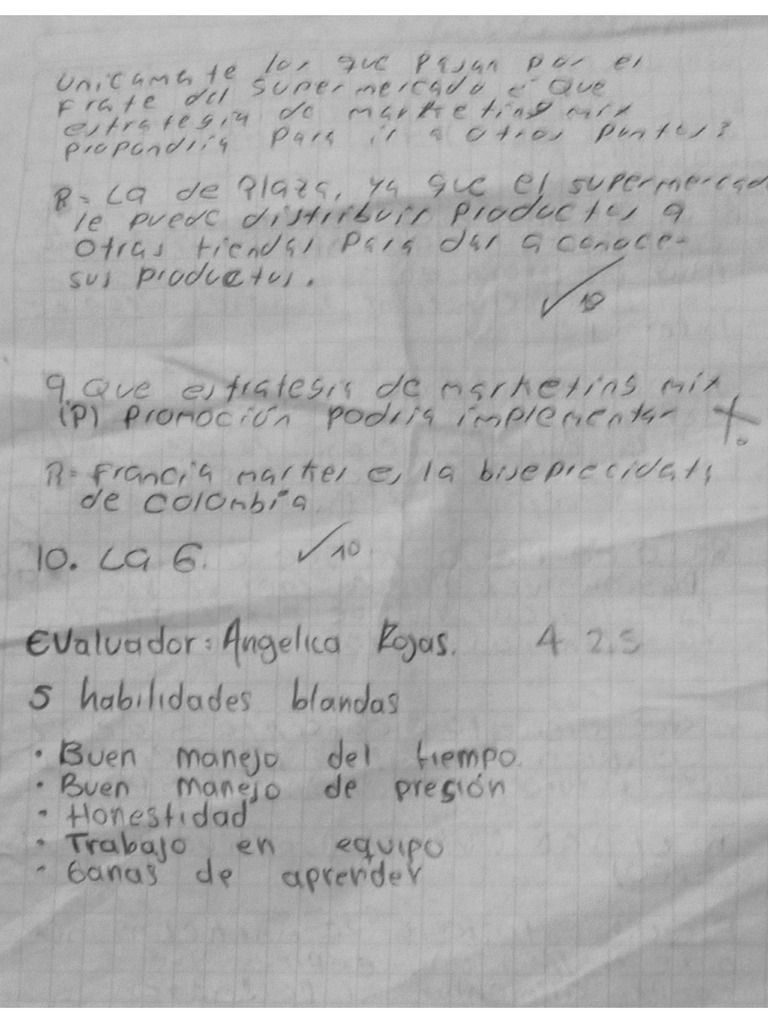 unicamate los que pasan por el
frate del supermercado ¿ que
estrategia de marketing mix
propondria para ir a otros puntos?
R= La de Plaza, ya que el supermercad
le puede distribuir productos a
otras tiendas para dar a conocer
sus productos.
✓ 10
9. Que estrategia de marketing mix
(P) promoción podria implementar X.
R= francia market es la
de colombia
10. La 6. ✓ 10
Evaluador: Angelica Rojas. 4 2.5
5 habilidades blandas
· Buen manejo del tiempo.
· Buen manejo de presión
· Honestidad
· Trabajo en equipo
· Ganas de aprender